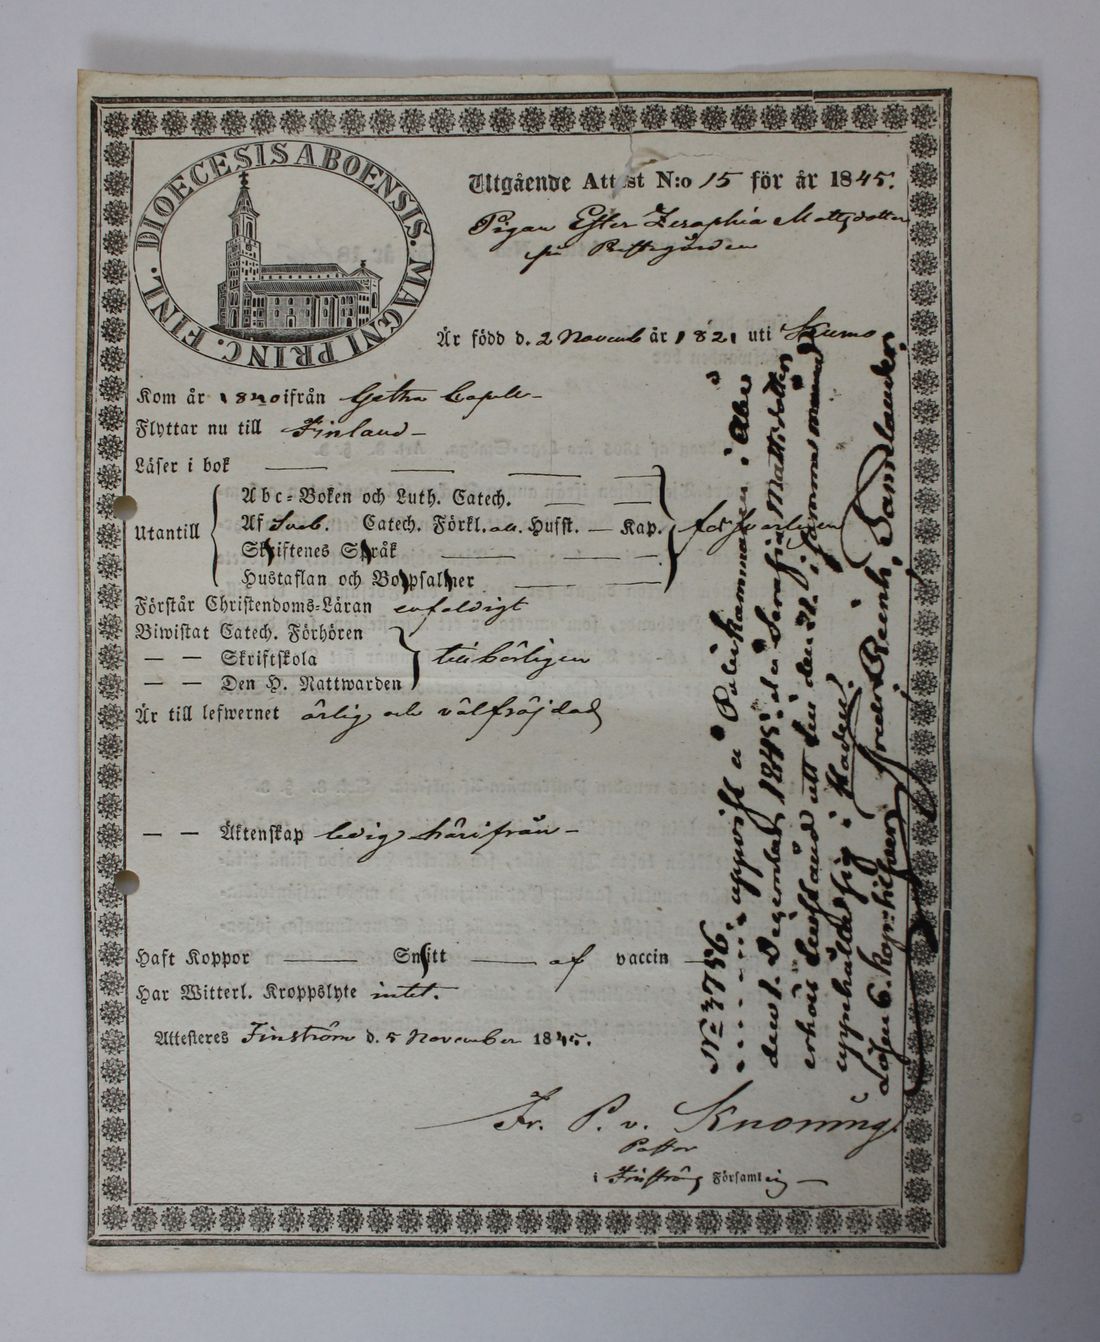 DIOECESIS ABOENSIS. MAGNI PRINC. FINL.
Utgående Attest N:o 15 för år 1845.
Pigan Ester Zeraphia Mattsdotter
på Prestgården
Är född d. 2 Novemb år 1821 uti Kumo
Kom år 1840 ifrån Getha Capell
Flyttar nu till Finland
Läser i bok — — —
Abc-Boken och Luth. Catech. — —
Utantill Af Sveb. Catech. Förkl. och Husst. — Kap. försvarligen
Skriftenes Språk — —
Hustaflan och Botpsalmer — —
Förstår Christendoms-Läran enfaldigt
Biwistat Catech. Förhören
— — Skriftskola tillbörligen
— — Den H. Nattwarden
Är till lefwernet ärlig och välfräjdad
— — Äktenskap ledig härifrån —
Haft Koppor — Snitt — af vaccin —
Har Witterl. Kroppslyte intet.
Attesteras Finström d. 5 November 1845.
Fr. P. v. Knorring.
Pastor
i Finströms Församling —
No 3756.
uppvist i Poliskammaren i Åbo
den 1. December 1845. då Serafia Mattsdotter
erhöll tillstånd att till den 21. i samma månad
uppehålla sig i staden.
Lösen 6. kop. silfver Fredr. Reinh. Sandlander.